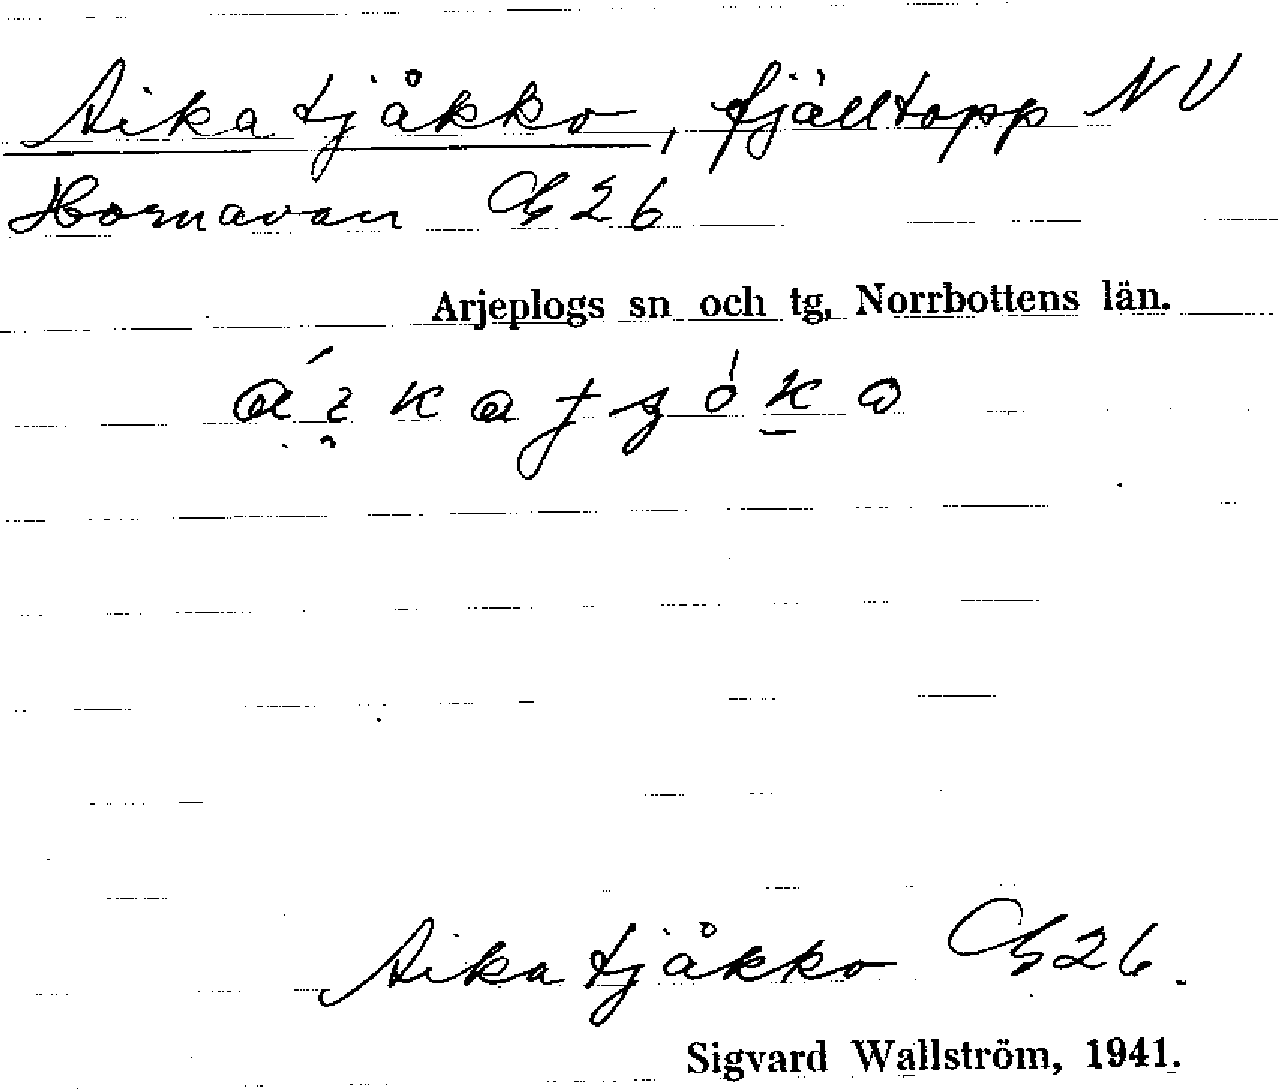 Aikatjåkko, fjälltopp NV
Hornavan G26
Arjeplogs sn och tg, Norrbottens län.
Aikatjåkko G26.
Sigvard Wallström, 1941.